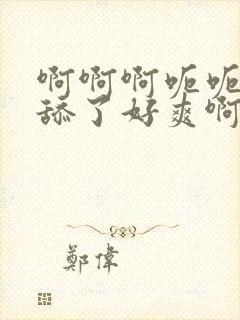 啊啊啊呃呃
舔了好爽啊
鄭偉